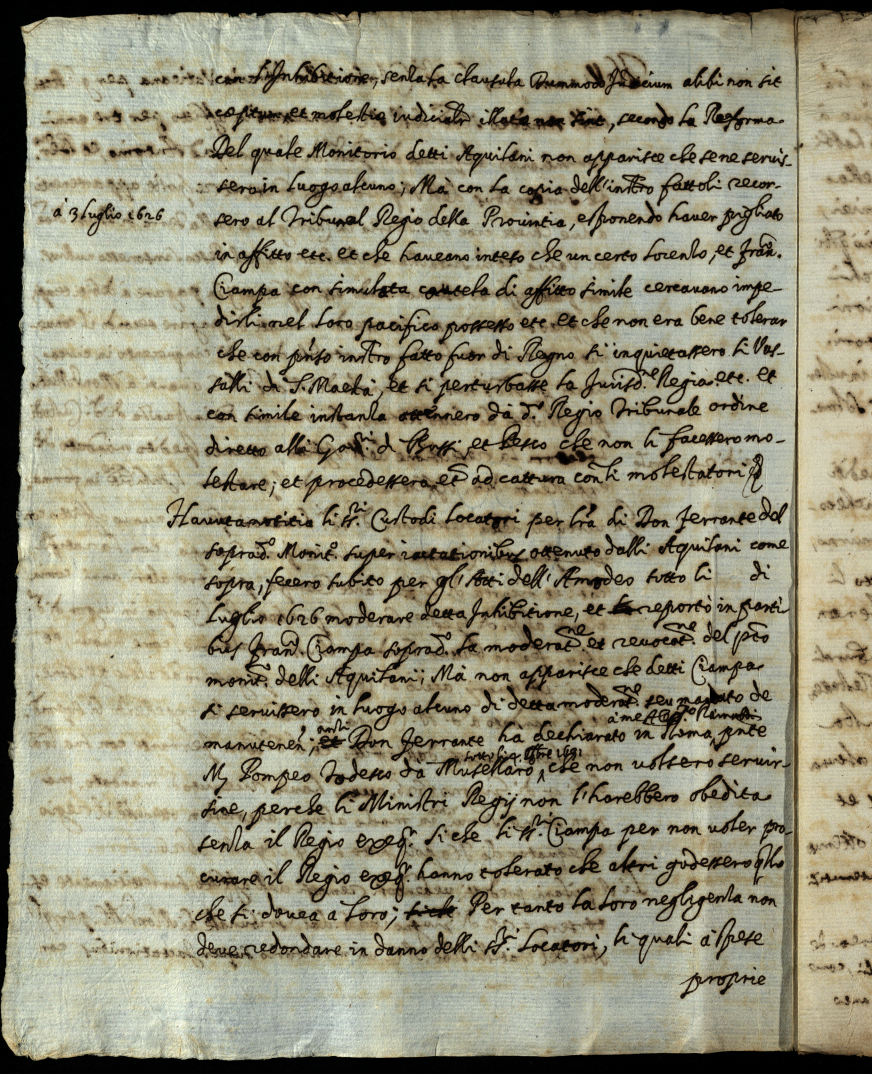 con l'Inhibitione, senza la clausula Dummodo Judicium alibi non sit
ceptum, et molestie iudicialr illate non sint, secondo la Reforma
Del quale Monitorio detti Aquilani non apparisce che sene servis-
sero in luogo alcuno; Mà con la copia dell'instro fattoli recor-
à 3 luglio 1626
sero al Tribunal Regio della Provintia, esponendo haver pigliato
in affitto etc. et che haveano inteso che un certo Locenzo, et Fran.
Ciampa con simulata cautela di affitto simile cercavano impe-
dirli nel loro pacifico possesso etc. et che non era bene tolerar
che con pnso instro fatto fuor di Regno si inquietassero li Vas-
salli di S. Maestà, et si perturbasse la Jurisd.ne Regia etc. et
con simile instanza ottennero dà d.o Regio Tribunale ordine
diretto alla di Bussi, et Pesco che non li facessero mo-
lestare; et procedessero etc ad cattura con li molestatori
Havuta notitia li ss.ri Custodi Locatori per lra di Don Ferrante del
soprad.o Monit.o super iactationibus ottenuto dalli Aquilani come
sopra, fecero subito per gl'Atti dell'Amodeo sotto li di
Luglio 1626 moderare detta Inhibitione, et reportò in parti
bus Fran. Ciampa soprad.o la moderat.ne et revocat.ne del pto
monit.o delli Aquilani; Mà non apparisce che detti Ciampa
si servissero in luogo alcuno di detta moderat.ne seu mandato de
manutenen; anzi Don Ferrante hà dechiarato in Roma, pnte
M. Pompeo Todesco dà Musellaro, che non volsero servir-
sine, perche li Ministri Regij non l'harebbero obedita
senza il Regio exeq.r Si che li ss.ri Ciampa per non voler pro-
curare il Regio exeq.r hanno tolerato che altri godessero qllo
che si dovea a loro; Per tanto la loro negligenza non
deve redondare in danno delli ss.ri Locatori, li quali à spese
proprie